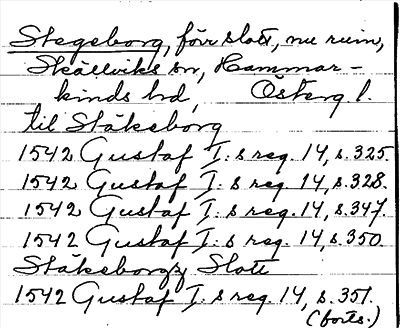 Stegeborg, förr slott, nu ruin,
Skällviks sn, Hammar-
kinds hd, Österg l.
til Stäkeborg
1542 Gustaf I:s reg. 14, s.325.
1542 Gustaf I:s reg. 14, s.328.
1542 Gustaf I:s reg. 14, s.347.
1542 Gustaf I:s reg. 14, s.350.
Stäkeborgz Slott
1542 Gustaf I:s reg. 14, s.351.
(forts.)